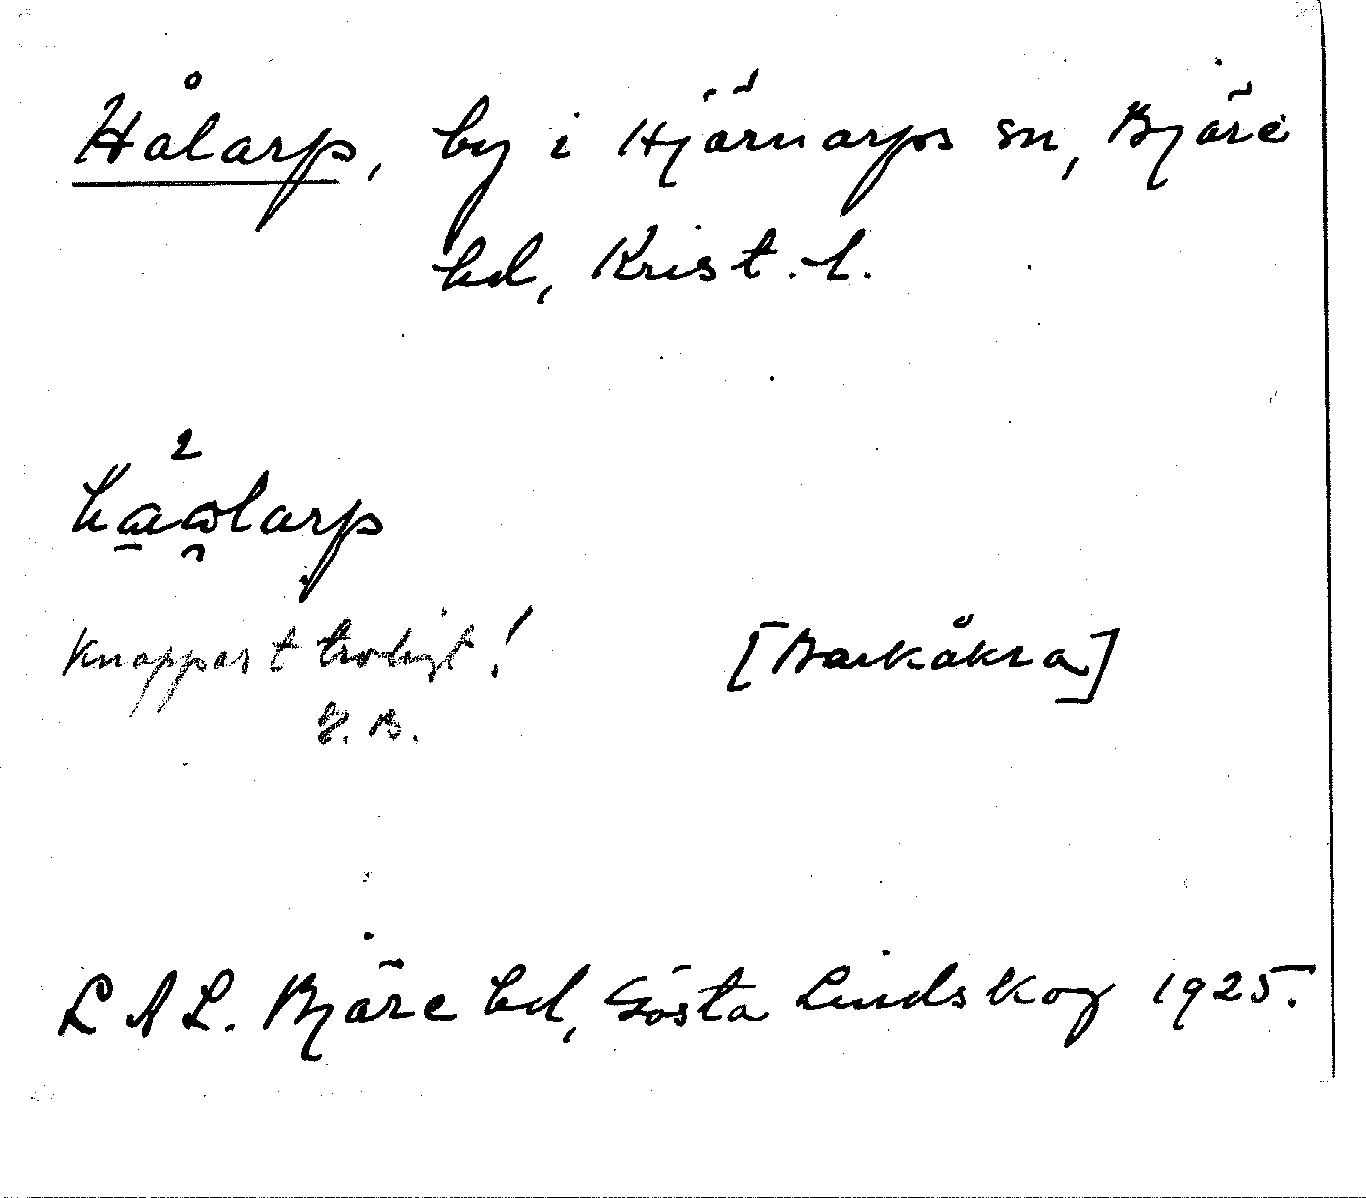 Hålarp, by i Hjärnarps sn, Bjäre
hd, Krist. l.
Knappast troligt!
[Barkåkra]
G. B.
L A L. Bjäre hd, Gösta Lindskog 1925.